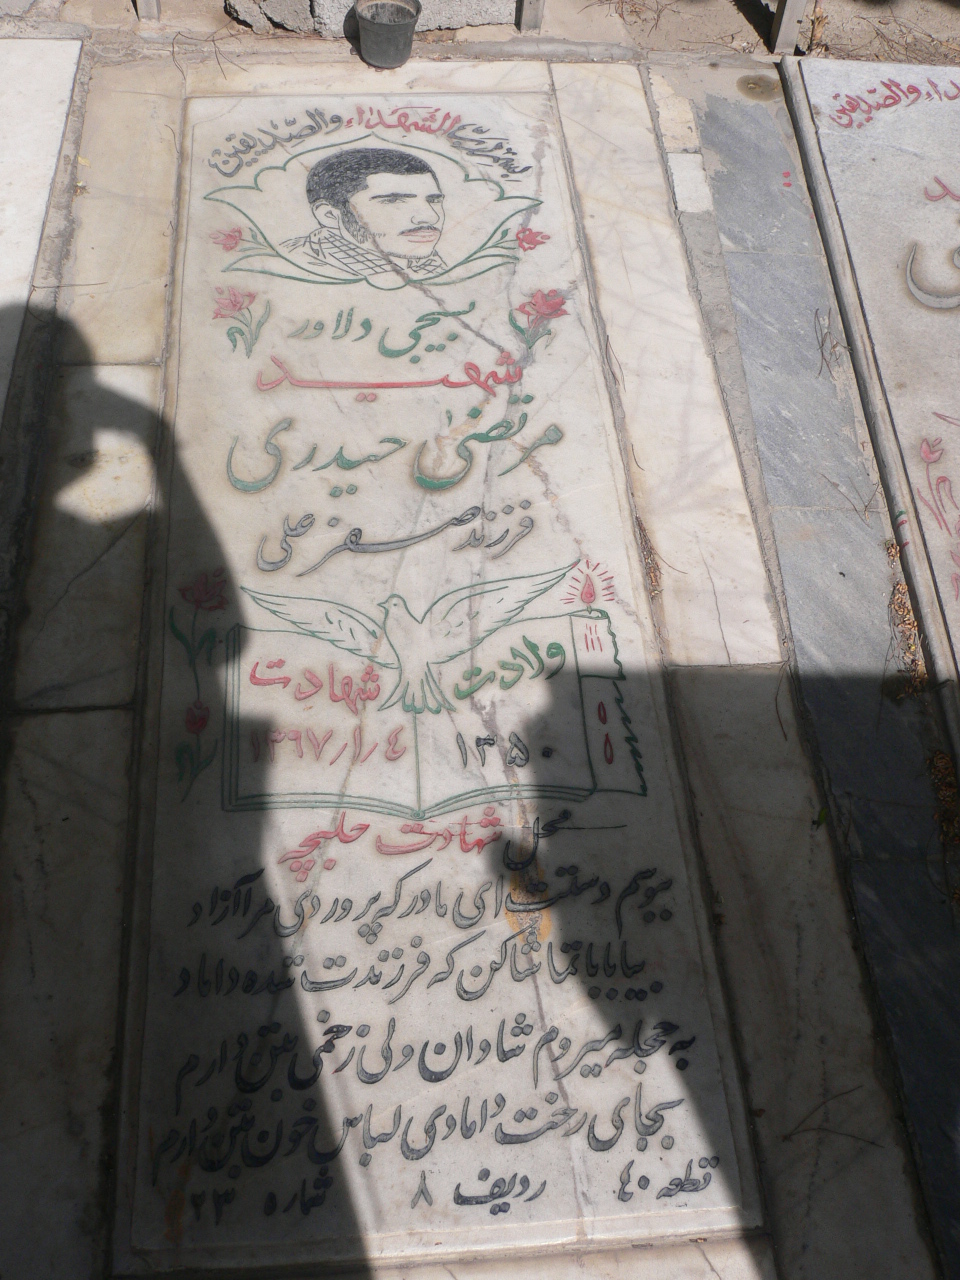 بسم رب الشهداء والصدیقین
بسیجی دلاور
شهید
مرتضی حیدری
فرزند صفرعلی
ولادت شهادت
۱۳۵۰ ٤ر۱ر۱۳٦۷
محل شهادت حلبچه
ببوسم دستت ای مادر که پروردی مرا آزاد
بیا بابا تماشا کن که فرزندت شده داماد
به حجله میروم شادان ولی زخمی بتن دارم
بجای رخت دامادی لباس خون بتن دارم
قطعه ٤۰ ردیف ۸ شماره ۲۳
داء والصدیقین